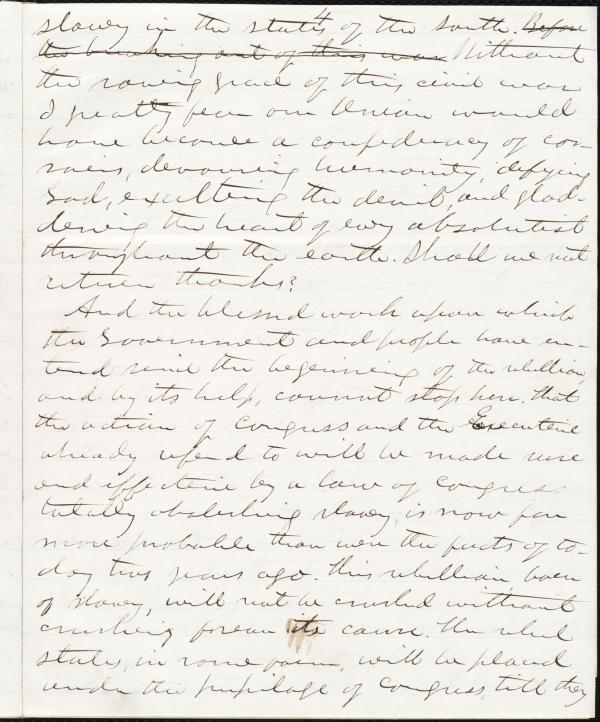 slavery in the states of the South. Before
the breaking out of this war Without
the saving grace of this civil war
I greatly fear our Union would
have become a confederacy of cor-
sairs, devouring humanity, defying
God, exalting the devil, and glad-
dening the heart of every absolutist
throughout the earth. Shall we not
return thanks?
And the blessed work upon which
the Government and people have en-
tered since the beginning of the rebellion,
and by its help, cannot stop here. That
the action of Congress and the Executive
already referred to will be made sure
and effective by a law of Congress
totally abolishing slavery, is now far
more probable than were the facts of to-
day two years ago. This rebellion, born
of slavery, will not be crushed without
crushing forever its cause. The rebel
states, in some form, will be placed
under the pupilage of Congress, till they